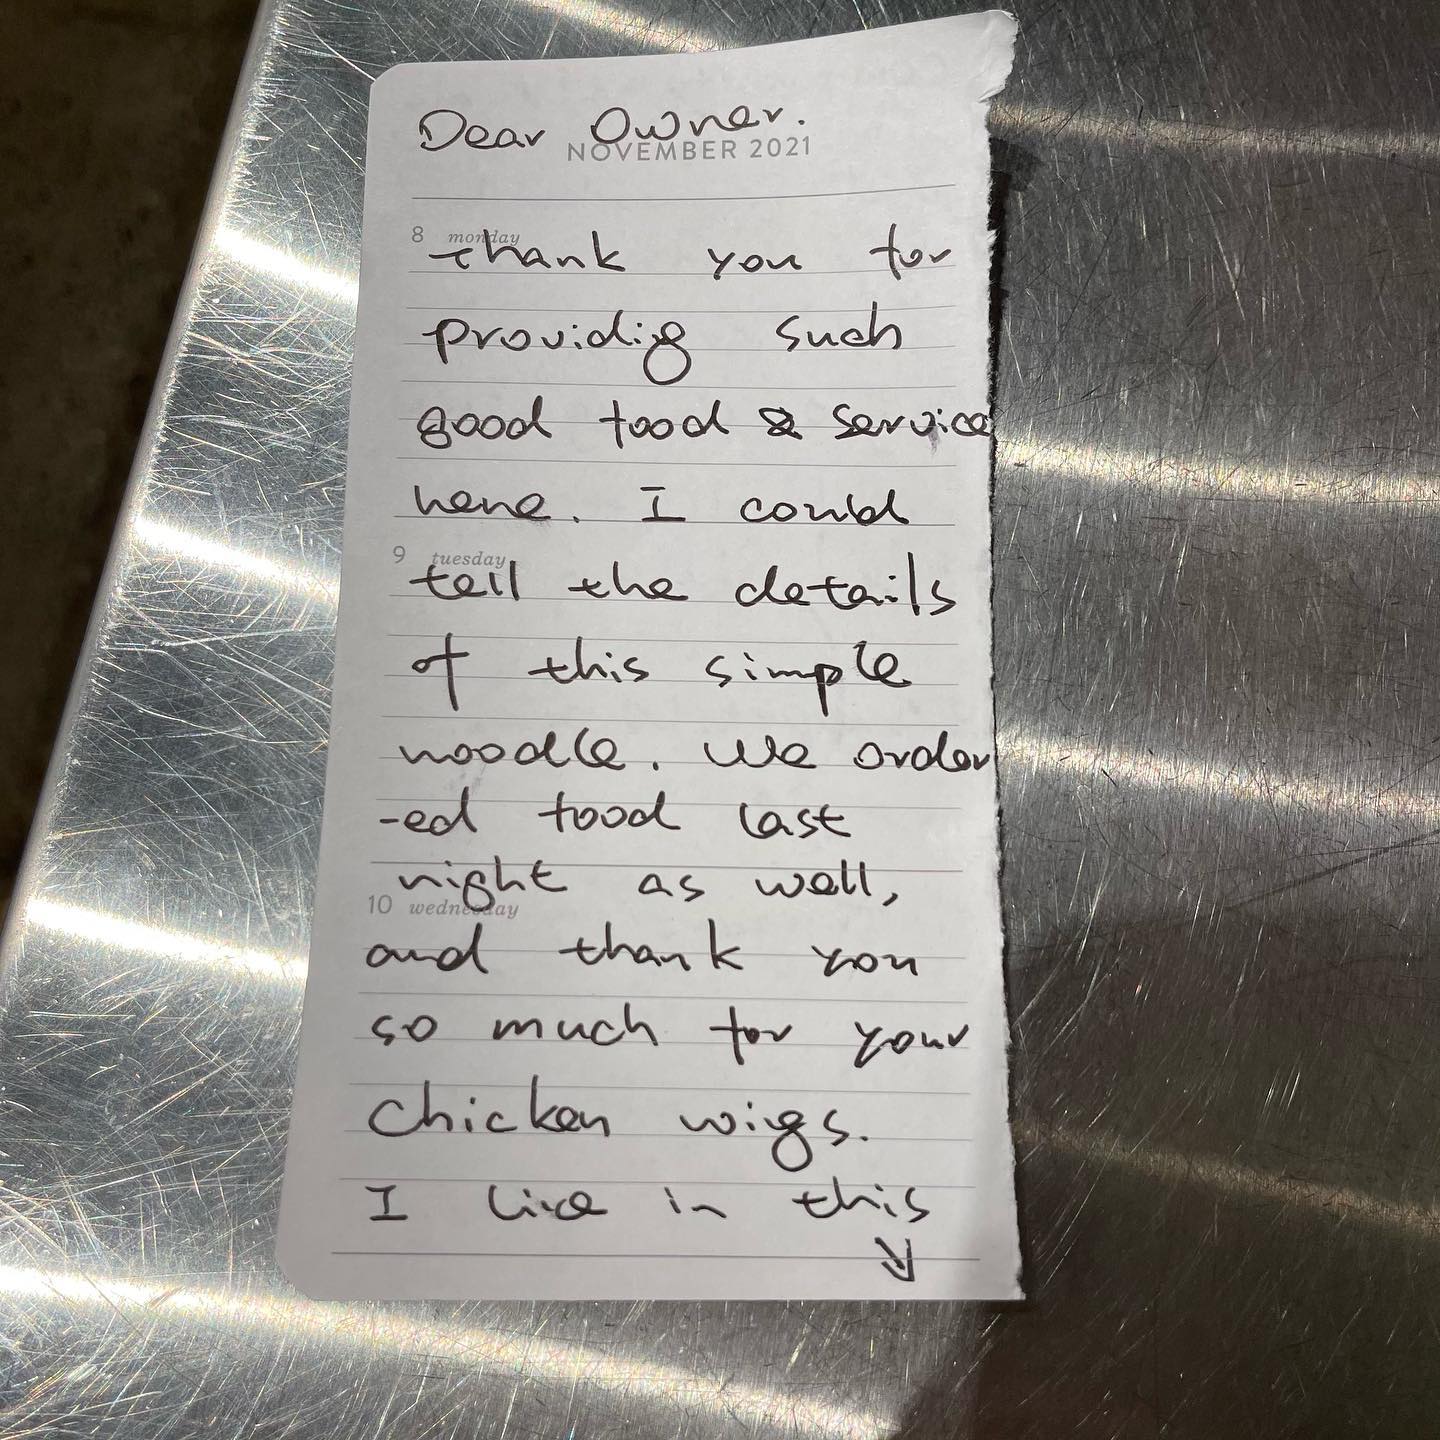 Dear Owner.
NOVEMBER 2021
8 monday
thank you for
providig such
good food & service
here. I could
9 tuesday
tell the details
of this simple
noodle. We order
-ed food last
night as well,
10 wednesday
and thank you
so much for your
chicken wigs.
I live in this